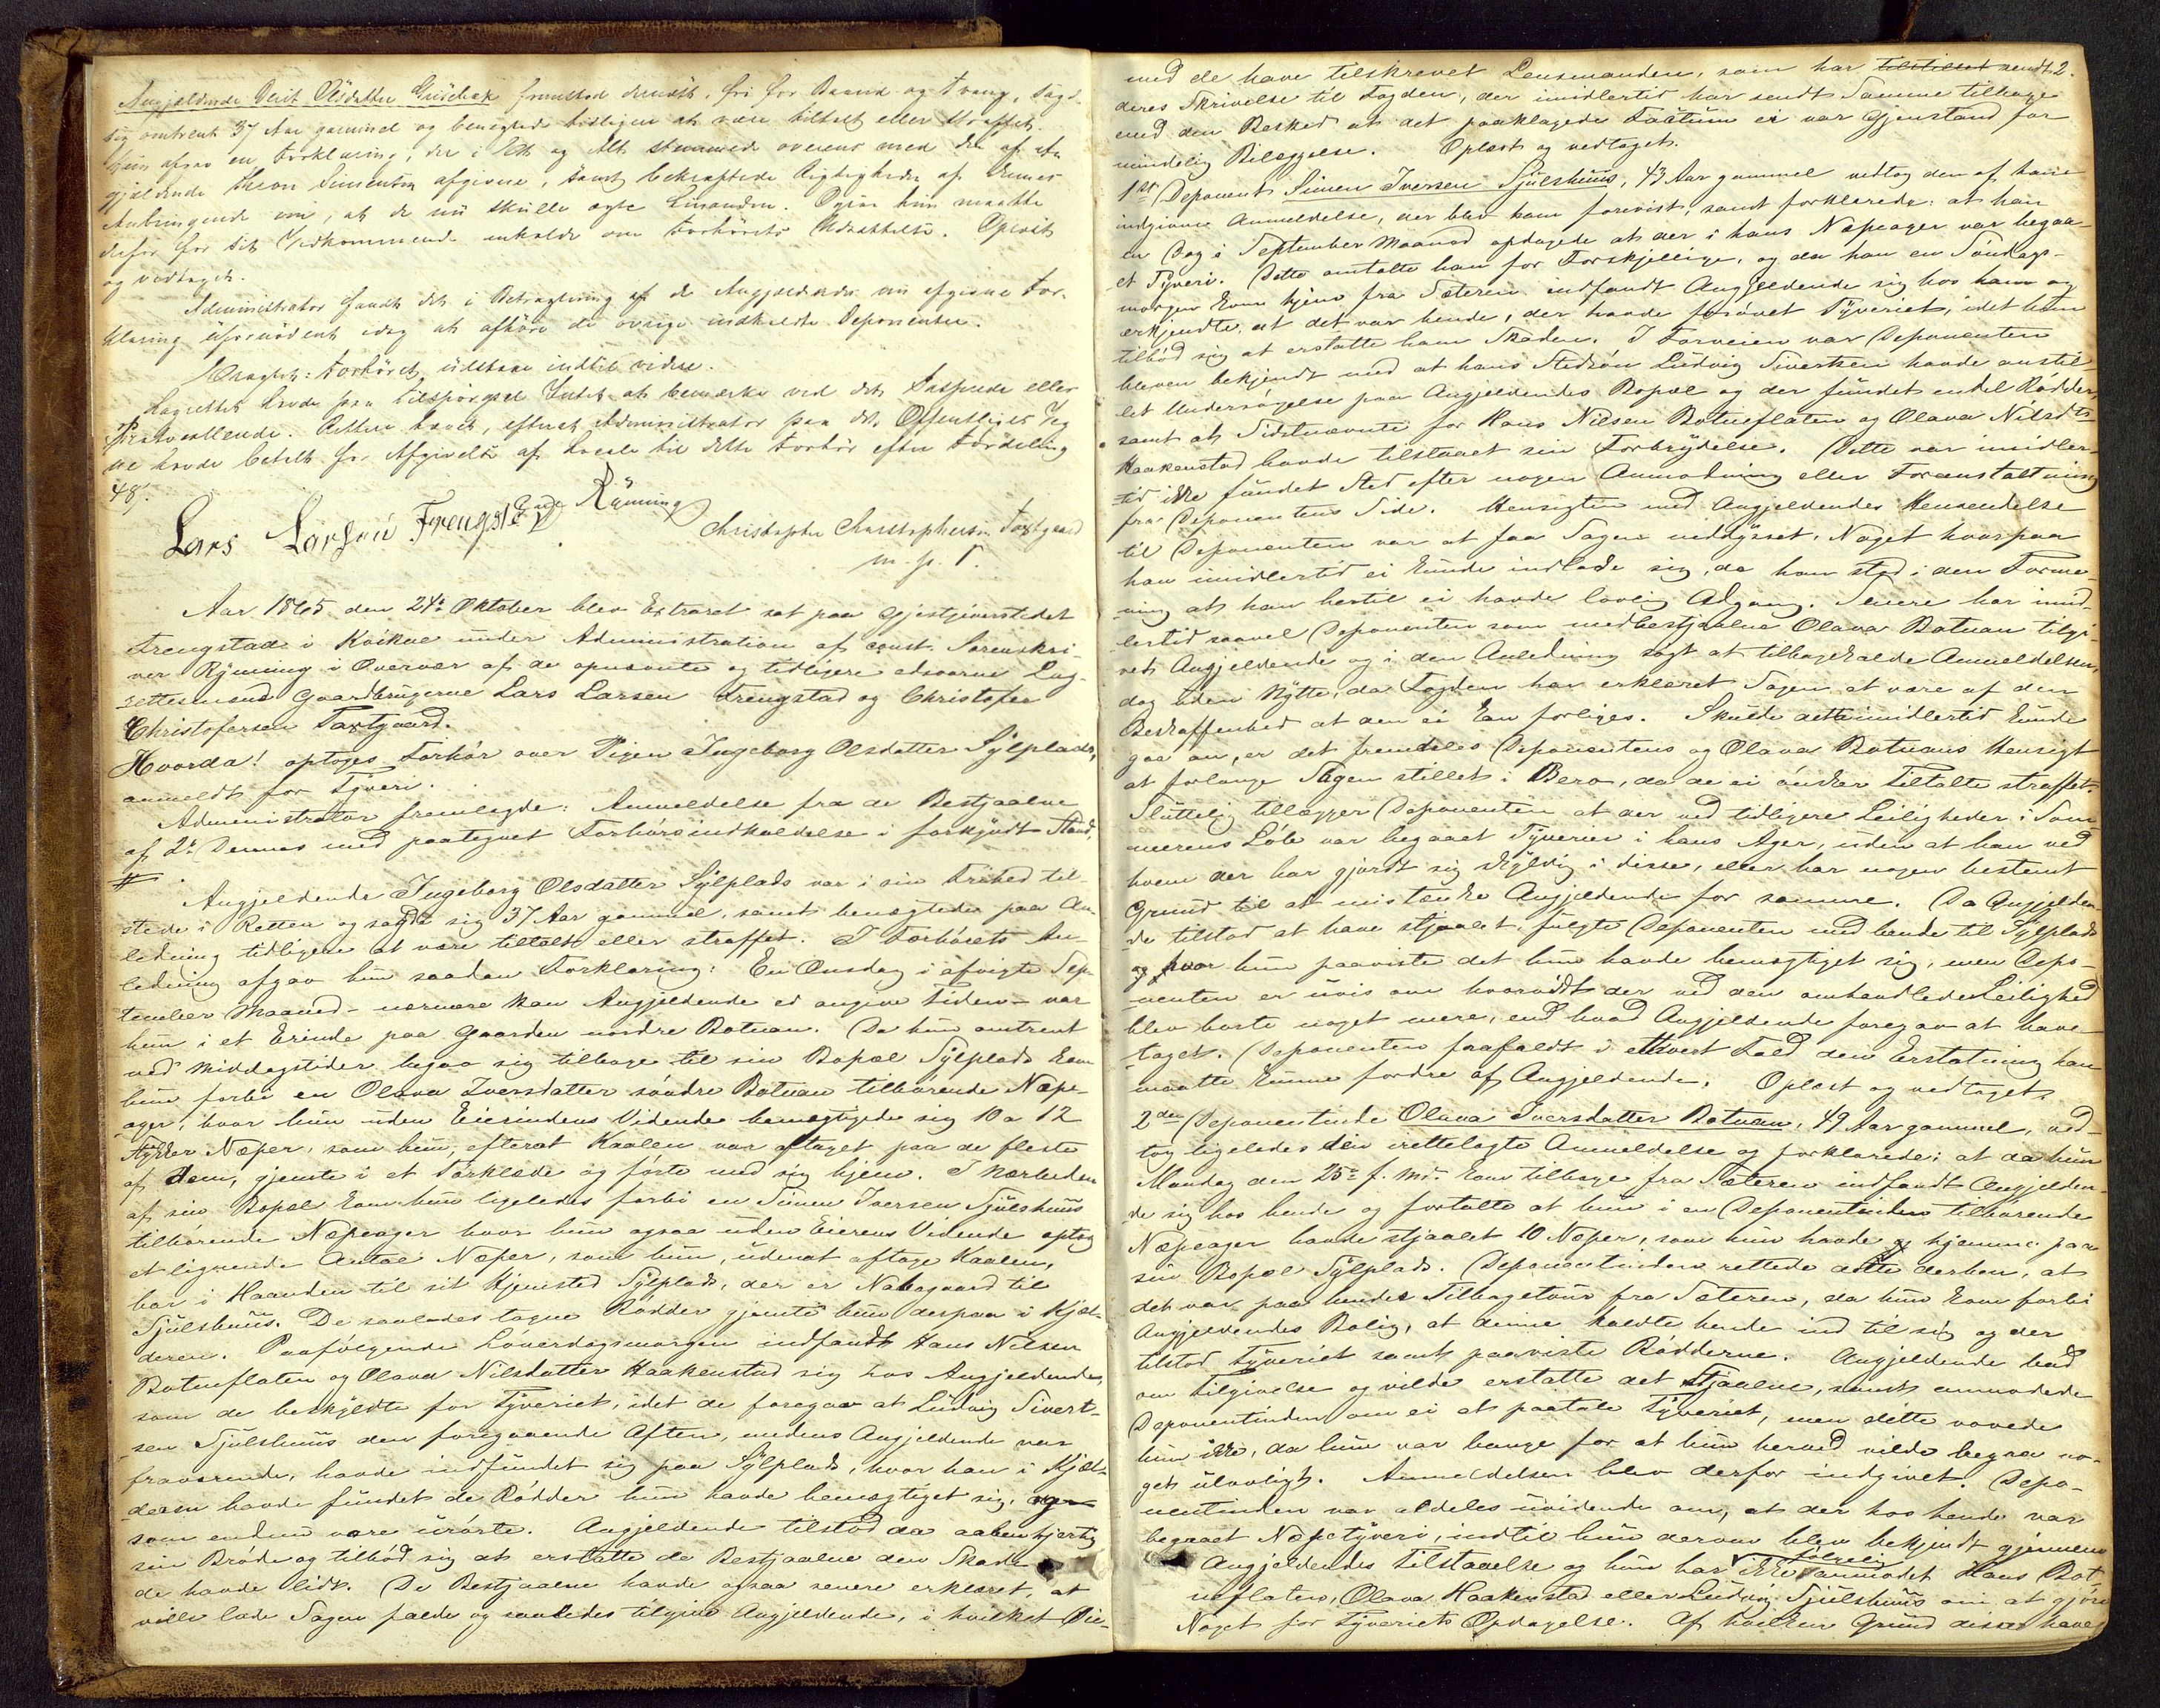 Angjeldende Berit Olsdatter Gudbak fremstod dernæst, fri for Baand og Tvang, sagde
sig omtrent 37 Aar gammel og benegtede tidligere at være tiltalt eller straffet.
Hun afgav en Forklaring, der i Et og Alt stemmede overens med den af An-
gjeldende Simensen afgivne, samt bekræftede Rigtigheden af dennes
Anbringende om, at de nu skulle ægte hinanden. Ogsaa hun maatte
derfor for sit Vedkommende enkelde om Forhørets Udsættelse. Oplæst
og vedtaget.
Administrator fandt det i Betragtning af de Angjeldendes nu afgivne For-
klaring ufornødent idag at afhøre de øvrige indkaldte Deponenter.
Eragtet: Forhøret udstaar indtil videre.
Lagrettet havde paa Tilspørgsel Intet at bemærke ved det Passerede eller
Protocollerede. Retten hævet, efterat Administrator paa det Offentliges Veg-
ne havde betalt for Afgivelse af Locale til dette Forhør efter Fordeling
48 s.
Rynning
Lars Larsen Frengstad Christopher Christophersen Taxtgaard
m. p. P.
Aar 1865 den 24de Oktober blev Extraret sat paa Gjestgiverstedet
Frengstad i Kvikne under Administration af const. Sorenskri-
ver Rynning i Overvær af de opnævnte og tidligere edsvorne Lag-
rettesmænd Gaardbrugerne Lars Larsen Frengstad og Christofer
Christofersen Taxtgaard.
Hvorda! optoges Forhør over Pigen Ingeborg Olsdatter Sylplads,
anmeldt for Tyveri.
Administrator fremlagde: Anmeldelse fra de Bestjaalne
af 2de Dennes med paategnet Forhørsindkaldelse i forkyndt Stand.
#
Angjeldende Ingeborg Olsdatter Sylplads var i sin Frihed til-
stede i Retten og sagde sig 37 Aar gammel, samt benegtede paa An-
ledning tidligere at være tiltalt eller straffet. I Forhørets An-
ledning afgav hun saadan Forklaring: En Onsdag i afvigte Sep-
tember Maaned – nærmere kan Angjeldende ei angive Tiden – var
hun i et Erinde paa Gaarden nordre Botnan. Da hun omtrent
ved Middagstider begav sig tilbage til sin Bopæl Sylplads kom
hun forbi en Olava Iversdatter søndre Botnan tilhørende Næpe-
ager, hvor hun uden Eierindens Vidende bemægtigede sig 10 a 12
Stykker Næper, som hun, efterat Kaalen var aftaget paa de fleste
af dem, gjemte i et Forklæde og førte med sig hjem. I Nærheden
af sin Bopæl kom hun ligeledes forbi en Simen Iversen Sjulshuus
tilhørende Næpeager hvor hun ogsaa uden Eierens Vidende optog
et lignende Antal Næper, som hun, uden at aftage Kaalen,
bar i Haanden til sit Hjemsted Sylplads, der er Nabogaard til
Sjulshuus. De saaledes tagne Rødder gjemte hun derpaa i Kjæl-
deren. Paafølgende Løverdagsmorgen indfandt Hans Nilsen
Botneflaten og Olava Nilsdatter Haakenstad sig hos Angjeldende,
som de beskyldte for Tyveriet, idet de foregav at Ludvig Sivert-
sen Sjulshuus den foregaaende Aften, medens Angjeldende var
fraværende, havde indfundet sig paa Sylplads, hvor han i Kjæl-
deren havde fundet de Rødder hun havde bemægtiget sig,
som endnu vare urørte. Angjeldende tilstod da aabenhjertig
sin Brøde og tilbød sig at erstatte de Bestjaalne den Skade
de havde lidt. De Bestjaalne havde ogsaa senere erklæret, at
ville lade Sagen falde og saaledes tilgive Angjeldende, i hvilket Øie-
med de have tilskrevet Lensmanden, som har tilstillet sendt 2.
deres Skrivelse til Fogden, der imidlertid har sendt Samme tilbage
med den Besked at det paaklagede Factum ei var Gjenstand for
mindelig Bilæggelse. Oplæst og vedtaget.
1ste Deponent Simen Iversen Sjulshuus, 43 Aar gammel vedtog den af ham
indgivne Anmeldelse, der blev ham forevist, samt forklarede: at han
en Dag i September Maaned opdagede at der i hans Næpeager var begaa-
et Tyveri. Dette omtalte han for Forskjellige, og da han en Søndags-
morgen kom hjem fra Sæteren indfandt Angjeldende sig hos ham og
erkjendte at det var hende, der havde forøvet Tyveriet, idet hun
tilbød sig at erstatte ham Skaden. I Forveien var Deponenten
bleven bekjendt med at hans Stedsøn Ludvig Sivertsen havde anstil-
let Undersøgelse paa Angjeldendes Bopæl og der fundet endel Rødder,
samt at Sidstnævnte for Hans Nilsen Botneflaten og Olava Nilsdtr
Haakenstad havde tilstaaet sin Forbrydelse. Dette var imidler-
tid ikke fundet Sted efter nogen Anmodning eller Foranstaltning
fra Deponentens Side. Hensigten med Angjeldendes Henvendelse
til Deponenten var at faa Sagen neddysset, Noget hvorpaa
han imidlertid ei kunde indlade sig, da han stod i den Forme-
ning at han hertil ei havde lovlig Adgang. Senere har imid-
lertid saavel Deponenten som medbestjaalne Olava Botnan tilgi-
vet Angjeldende og i den Anledning søgt at tilbagekalde Anmeldelsen,
dog uden Nytte, da Fogden har erklæret Sagen at være af den
Beskaffenhed at den ei kan forliges. Skulde dette imidlertid kunde
gaa an, er det fremdeles Deponentens og Olava Botnans Hensigt
at forlange Sagen stillet i Bero, da de ei ønsker Tiltalte straffet.
Sluttelig tillægger Deponenten at der ved tidligere Leiligheder i Som-
merens Løb var begaaet Tyverier i hans Ager, uden at han ved
hvem der har gjordt sig skyldig i disse, eller har nogen bestemt
Grund til at mistænke Angjeldende for samme. Da Angjelden-
de tilstod at have stjaalet, fulgte Deponenten med hende til Sylplads
og hvor hun paaviste det hun havde bemægtiget sig, men Depo-
nenten er uvis om hvorvidt der ved den omhandlede Leilighed
blev borte noget mere, end hvad Angjeldende foregav at have
taget. Deponenten frafaldt i ethvert Fald den Erstatning han
maatte kunne fordre af Angjeldende. Oplæst og vedtaget.
2den Deponentinde Olava Iversdatter Botnan, 49 Aar gammel, ved-
tog ligeledes den irettelagte Anmeldelse og forklarede: at da hun
Mandag den 25de f. Md. kom tilbage fra Sæteren indfandt Angjelden-
de sig hos hende og fortalte at hun i en Deponentinden tilhørende
Næpeager havde stjaalet 10 Næper, som hun havde hjemme paa
sin Bopæl Sylplads. Deponentinden rettede dette derhen, at
det var paa hendes Tilbagetour fra Sæteren, da hun kom forbi
Angjeldendes Bolig, at denne kaldte hende ind til sig og der
tilstod Tyveriet samt paaviste Rødderne. Angjeldende bad
om Tilgivelse og vilde erstatte det Stjaalne, samt anmodede
Deponentinden om ei at paatale Tyveriet, men dette vovede
hun ikke, da hun var bange for at hun herved vilde begaa no-
get ulovligt. Anmeldelsen blev derfor indgivet. Depo-
nentinden var aldeles uvidende om, at der hos hende var
begaaet Næpetyveri, indtil hun derom blev bekjendt gjennem
Angjeldendes Tilstaaelse og hun har følgelig ikke anmodet Hans Bot-
neflaten, Olava Haakenstad eller Ludvig Sjulshuus om at gjøre
Noget for Tyveriets Opdagelse. Af hvilken Grund disse have